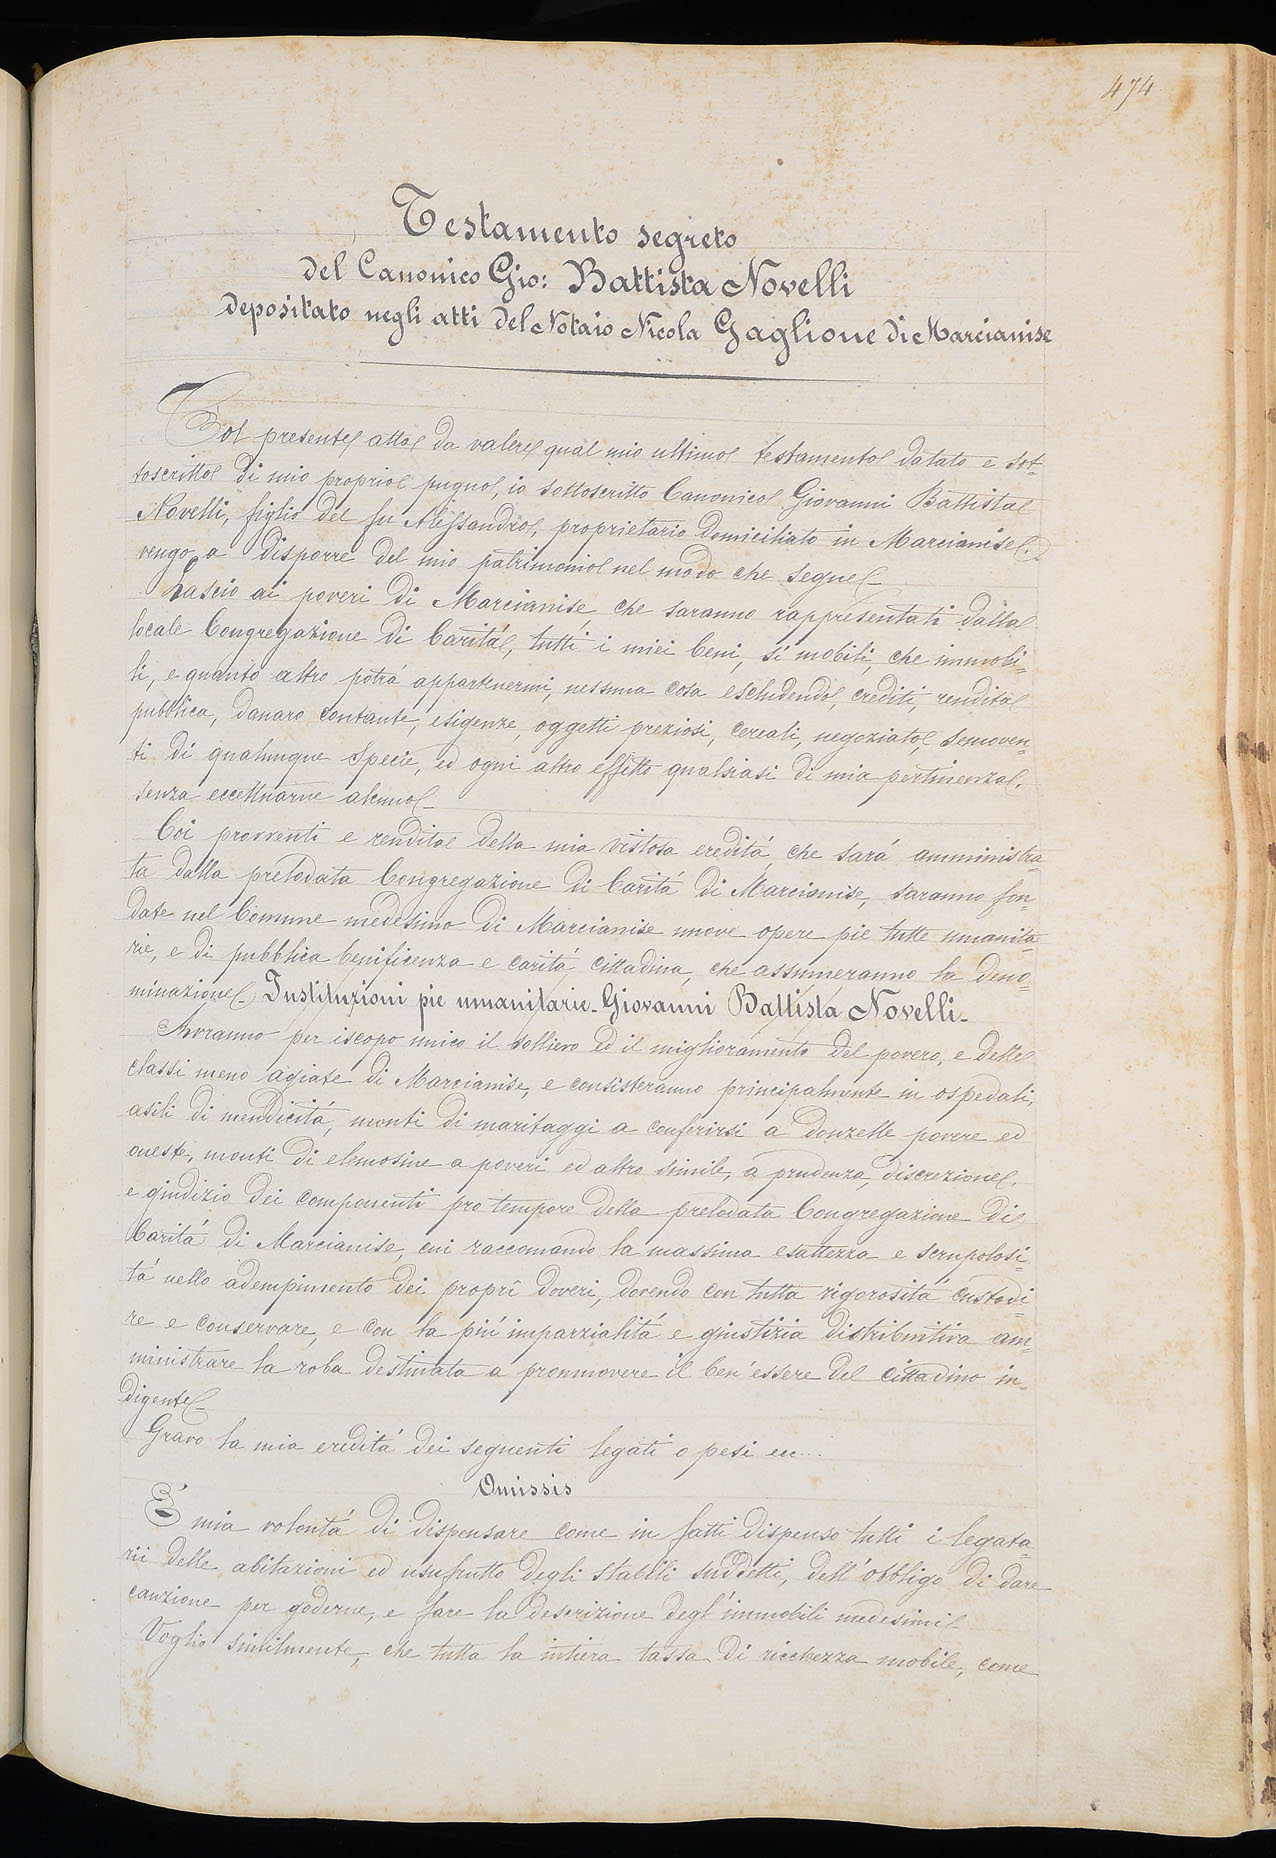 474
Testamento segreto
del Canonico Gio: Battista Novelli
depositato negli atti del Notaio Nicola Gaglione di Marcianise
Col presente atto da valere qual mio ultimo testamento datato e sot=
toscritto di mio proprio pugno, io sottoscritto Canonico Giovanni Battista
Novelli, figlio del fu Alessandro, proprietario domiciliato in Marcianise,
vengo a disporre del mio patrimonio nel modo che segue_
Lascio ai poveri di Marcianise, che saranno rappresentati dalla
locale Congregazione di Carità, tutti i miei beni, sì mobili, che immobi=
li, e quanto altro potrà appartenermi, nessuna cosa escludendo, crediti, rendita
pubblica, danaro contante, esigenze, oggetti preziosi, cereali, negoziato, semoven=
ti di qualunque specie, ed ogni altro effetto qualsiasi di mia pertinenza,
senza eccettuarne alcuno_
Coi provventi e rendita della mia vistosa eredità, che sarà amministra=
ta dalla prelodata Congregazione di Carità di Marcianise, saranno fon=
date nel Comune medesimo di Marcianise nuove opere pie tutte umanita=
rie, e di pubblica benificenza e carità cittadina, che assumeranno la deno=
minazione_ Instituzioni pie umanitarie_ Giovanni Battista Novelli_
Avranno per iscopo unico il sollievo ed il miglioramento del povero, e delle
classi meno agiate di Marcianise, e consisteranno principalmente in ospedali,
asili di mendicità, monti di maritaggi a conferirsi a donzelle povere ed
oneste, monti di elemosine a poveri ed altro simile, a prudenza, discrezione,
e giudizio dei componenti pro tempore della prelodata Congregazione di
Carità di Marcianise, cui raccomando la massima esattezza e scrupolosi=
tà nello adempimento dei proprî doveri, dovendo con tutta rigorosità custodi=
re e conservare, e con la più imparzialità e giustizia distributiva am=
ministrare la roba destinata a promuovere il ben'essere del cittadino in=
digente_
Gravo la mia eredità dei seguenti legati o pesi ecc...
Omissis
È mia volontà di dispensare come in fatti dispenso tutti i legata=
rii delle abitazioni ed usufrutto degli stabili suddetti, dell'obbligo di dare
cauzione per goderne, e fare la descrizione degl'immobili medesimi_
Voglio similmente, che tutta la intiera tassa di ricchezza mobile, come